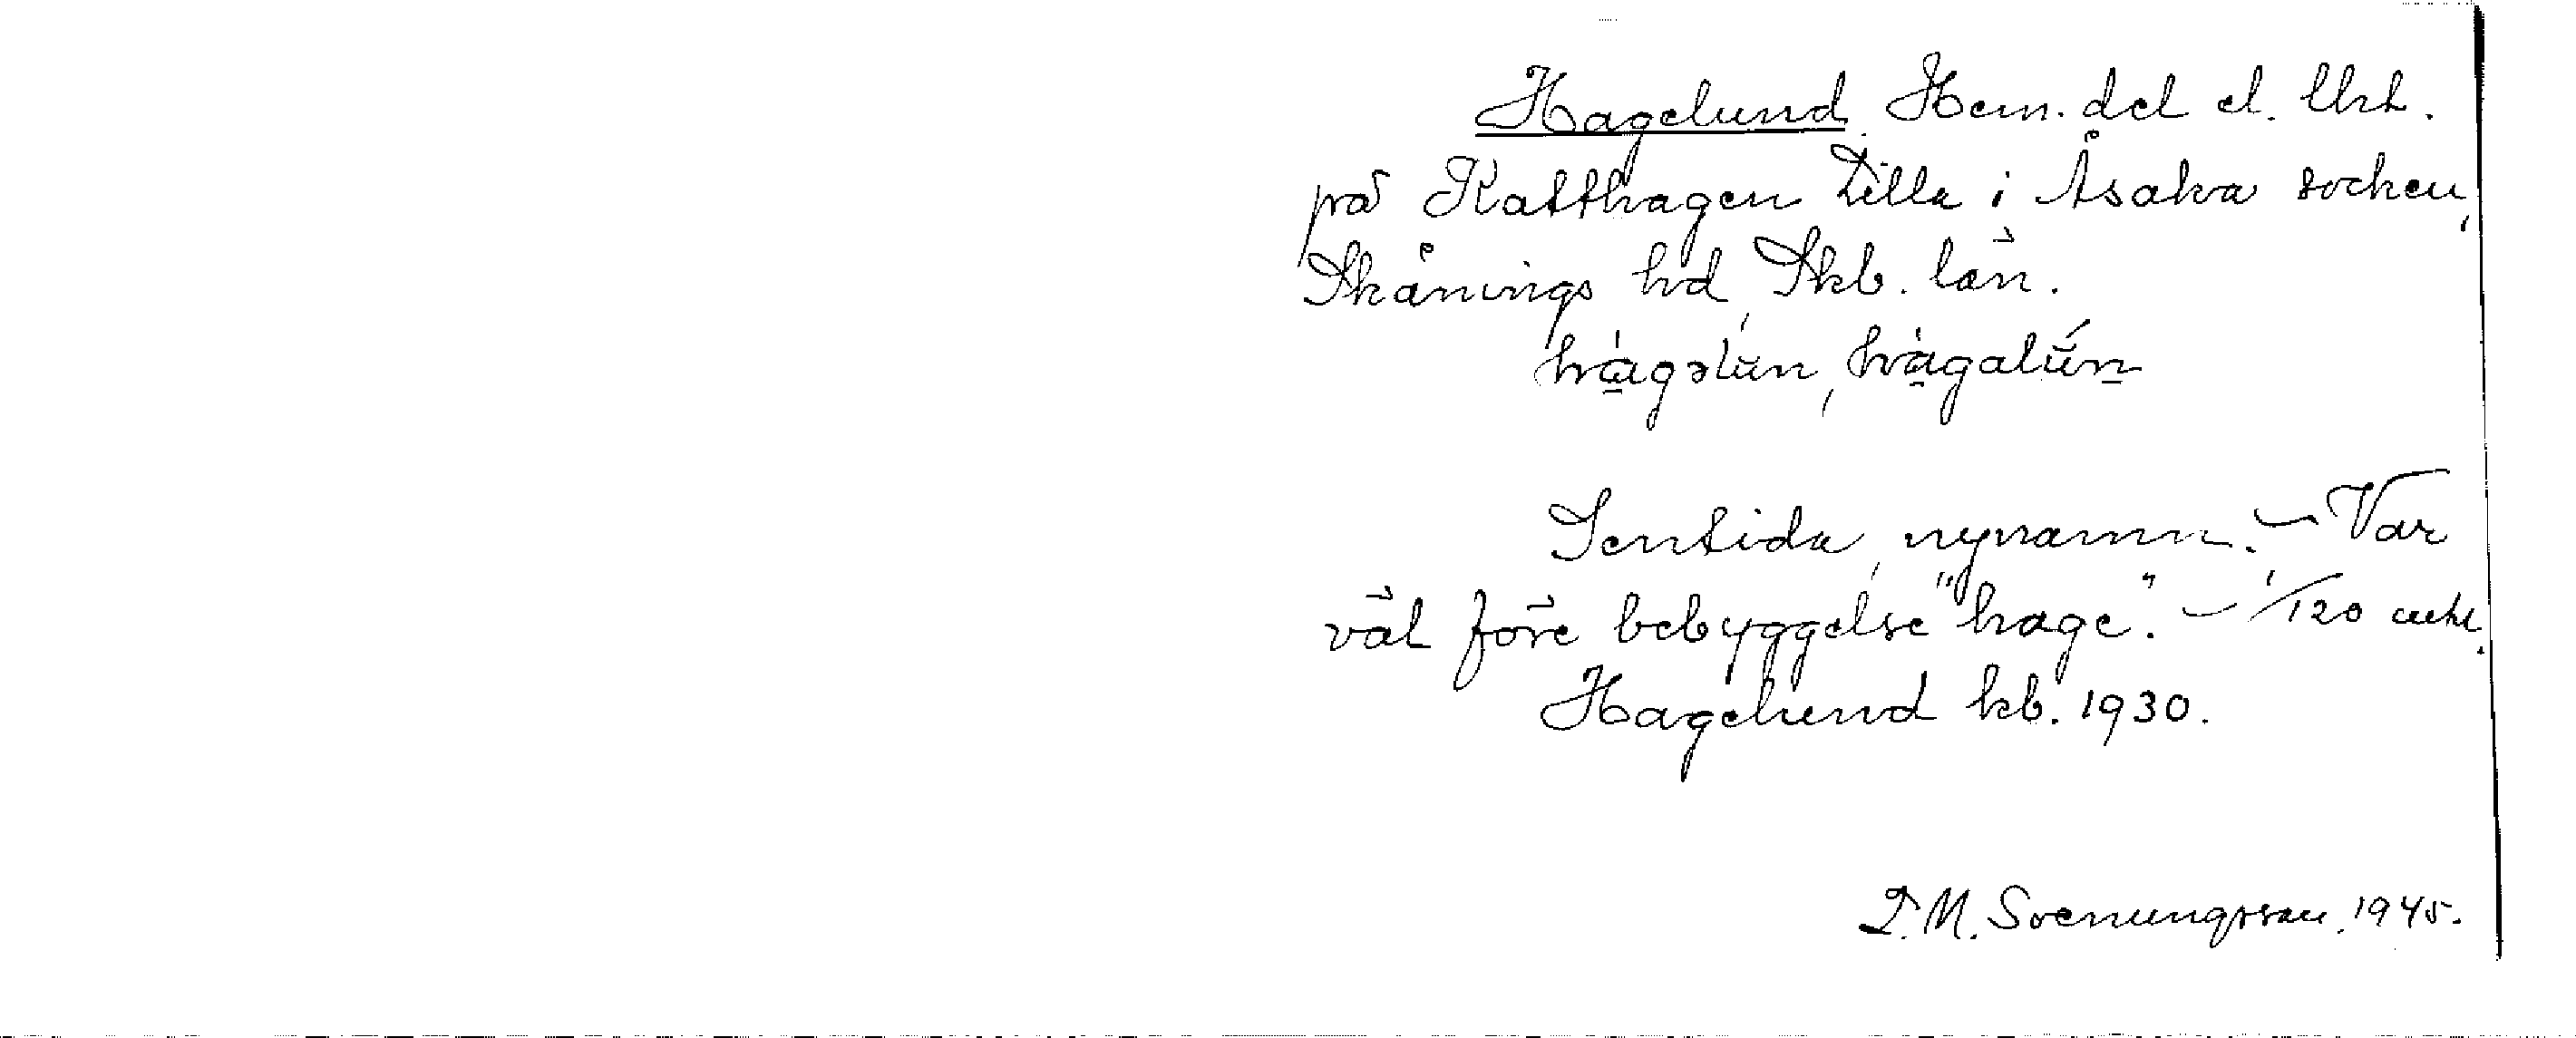 Hagelund. Hem. del el. lht.
på Katthagen Lilla i Åsaka socken,
Skånings hd, Skb. län.
hàgəlŭn, hàgalŭ́n
Sentida, nynamn. – Var
väl före bebyggelse "hage". – 1/120 mtl.
Hagelund kb. 1930.
D. M. Svenungsson. 1945.